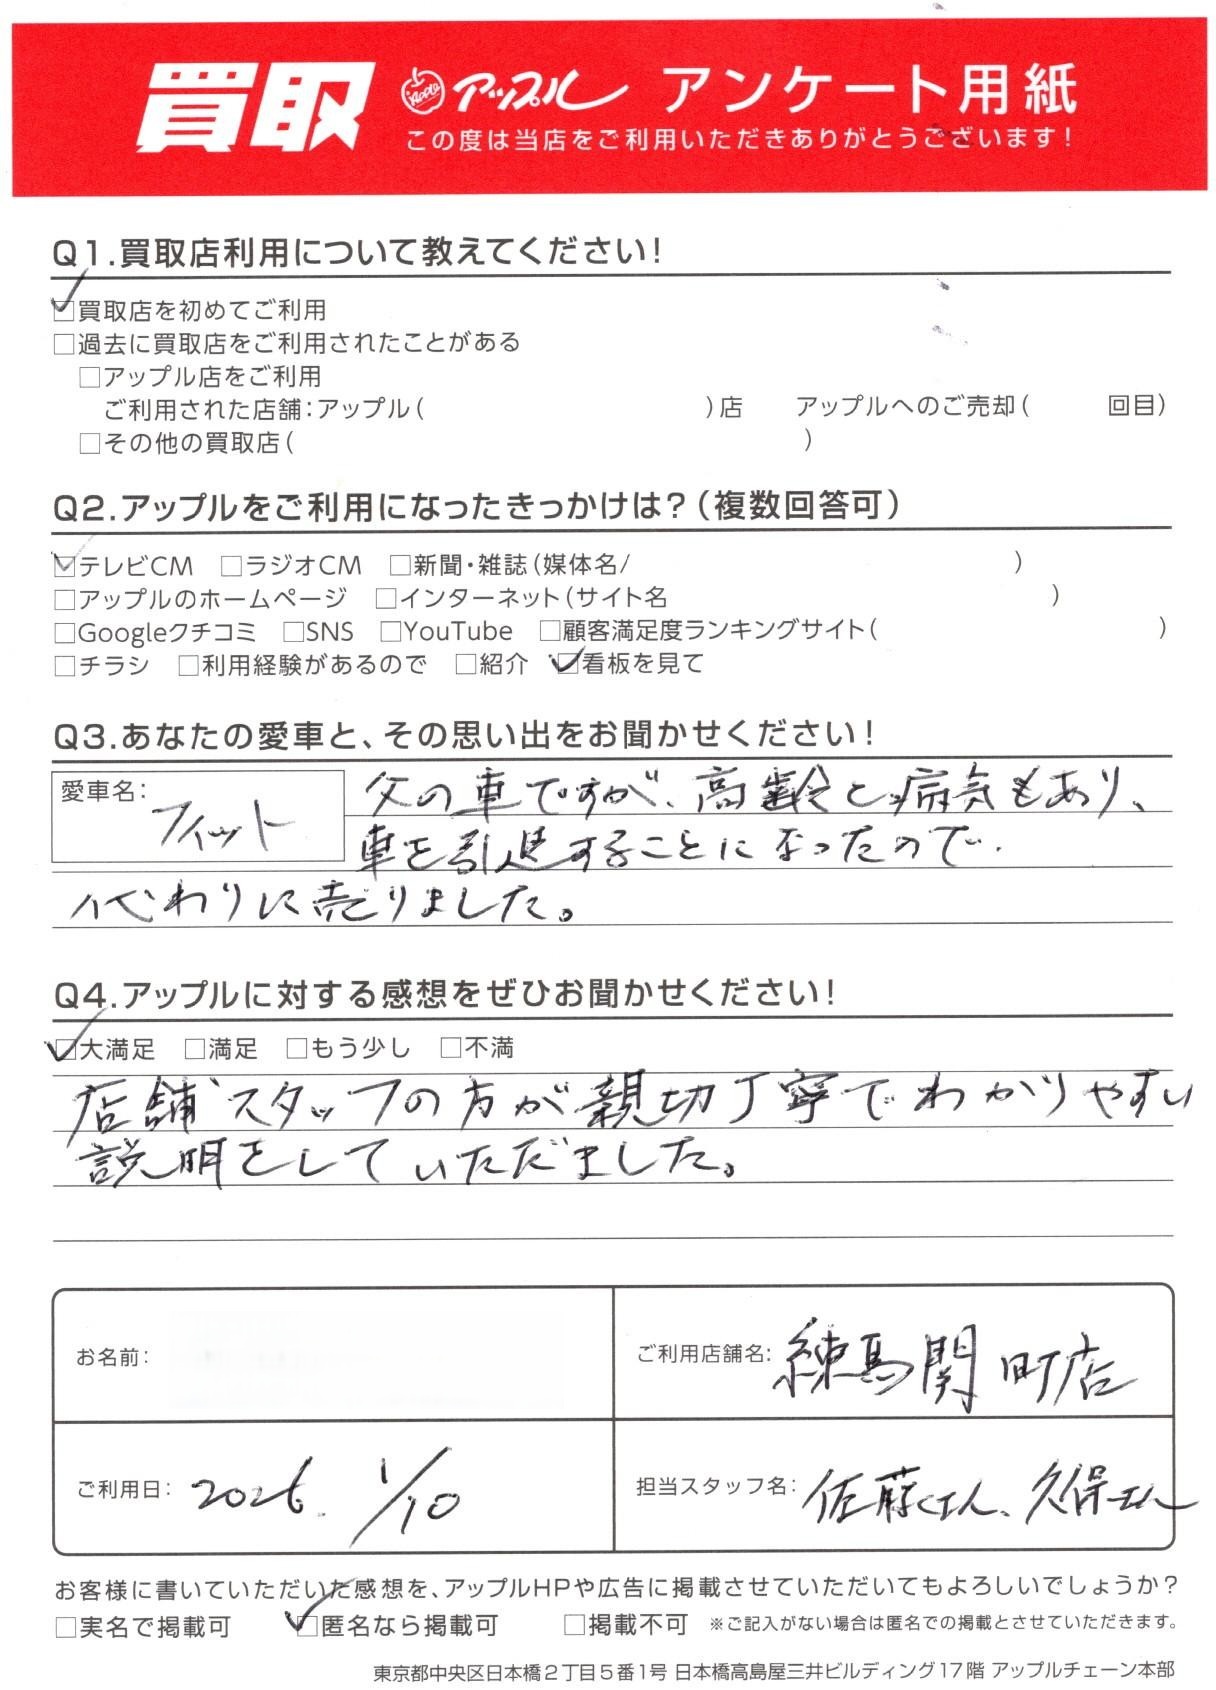 買取 Apple アップル アンケート用紙
この度は当店をご利用いただきありがとうございます!
Q1.買取店利用について教えてください!
☑買取店を初めてご利用
□過去に買取店をご利用されたことがある
□アップル店をご利用
ご利用された店舗:アップル( )店 アップルへのご売却( 回目)
□その他の買取店( )
Q2.アップルをご利用になったきっかけは?(複数回答可)
☑テレビCM □ラジオCM □新聞・雑誌(媒体名/ )
□アップルのホームページ □インターネット(サイト名 )
□Googleクチコミ □SNS □YouTube □顧客満足度ランキングサイト( )
□チラシ □利用経験があるので □紹介 ☑看板を見て
Q3.あなたの愛車と、その思い出をお聞かせください!
愛車名: フィット 父の車ですが、高齢と病気もあり、
車を引退することになったので、
代わりに売りました。
Q4.アップルに対する感想をぜひお聞かせください!
☑大満足 □満足 □もう少し □不満
店舗スタッフの方が親切丁寧でわかりやすい
説明をしていただだました。
お名前: ご利用店舗名: 練馬関町店
ご利用日: 2026. 1/10 担当スタッフ名: 佐藤くん、久保さん
お客様に書いていただいた感想を、アップルHPや広告に掲載させていただいてもよろしいでしょうか?
□実名で掲載可 ☑匿名なら掲載可 □掲載不可 ※ご記入がない場合は匿名での掲載とさせていただきます。
東京都中央区日本橋2丁目5番1号 日本橋高島屋三井ビルディング17階 アップルチェーン本部